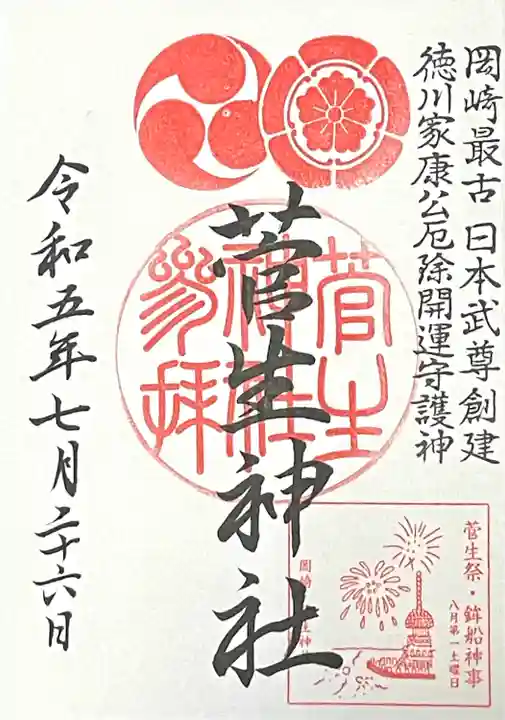 岡崎最古 日本武尊創建
徳川家康公厄除開運守護神
菅生神社
菅生
神社
参拝
令和五年七月二十六日
菅生祭・鉾船神事
八月第一土曜日
岡崎
生神